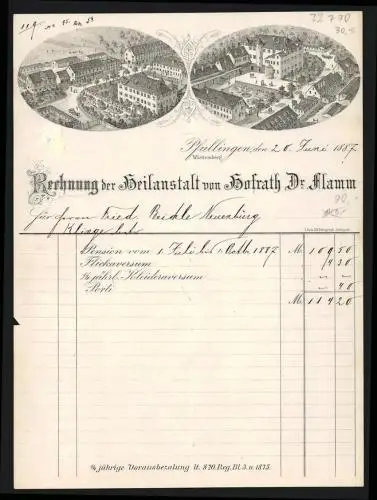 Pfullingen, den 26. Juni 1887
Württemberg
Rechnung der Heilanstalt von Hofrath Dr Flamm
für Herrn Fried. Neuenbürg
Pension vom 1. Juli bis 1. Octbr 1887 M. 109 50
Flickaversum 4 30
¼ jährl. Kleideraversum " "
Porti " 40
M. 114 20
¼ jährige Vorausbezahlung lt. § 20. Reg. Bl. 3. v. 1875.